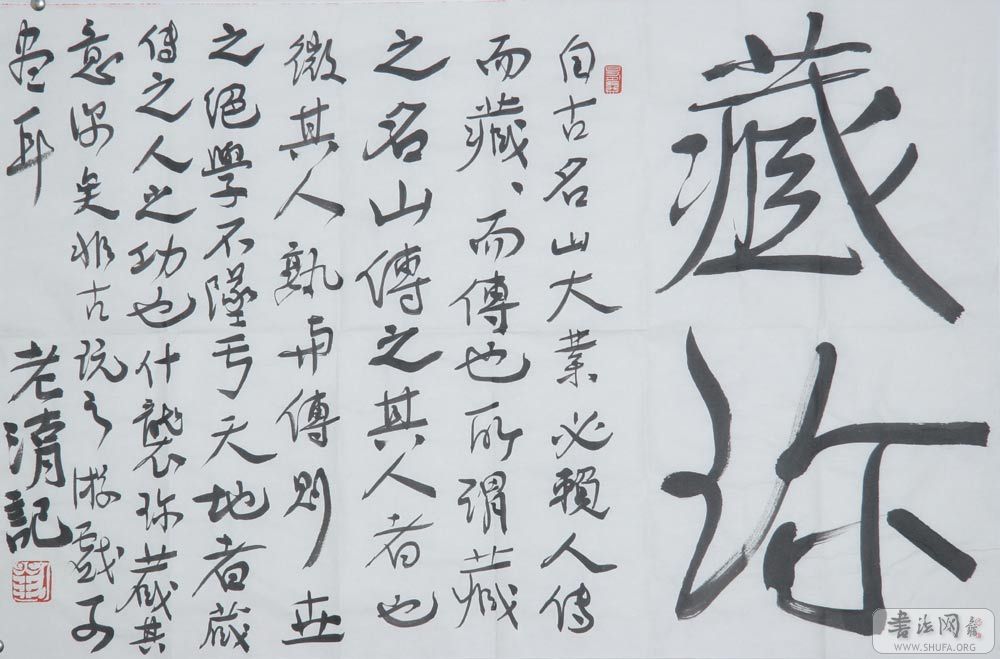 藏珎
自古名山大業必賴人傳
而藏、而傳也所謂藏
之名山傳之其人者也
微其人孰與傳則世
之絕學不墜亏天地者藏
傳之人之功也什襲珎藏其
意深矣非古玩之游戲可
盡耳
老清記
书法网
WWW.SHUFA.ORG